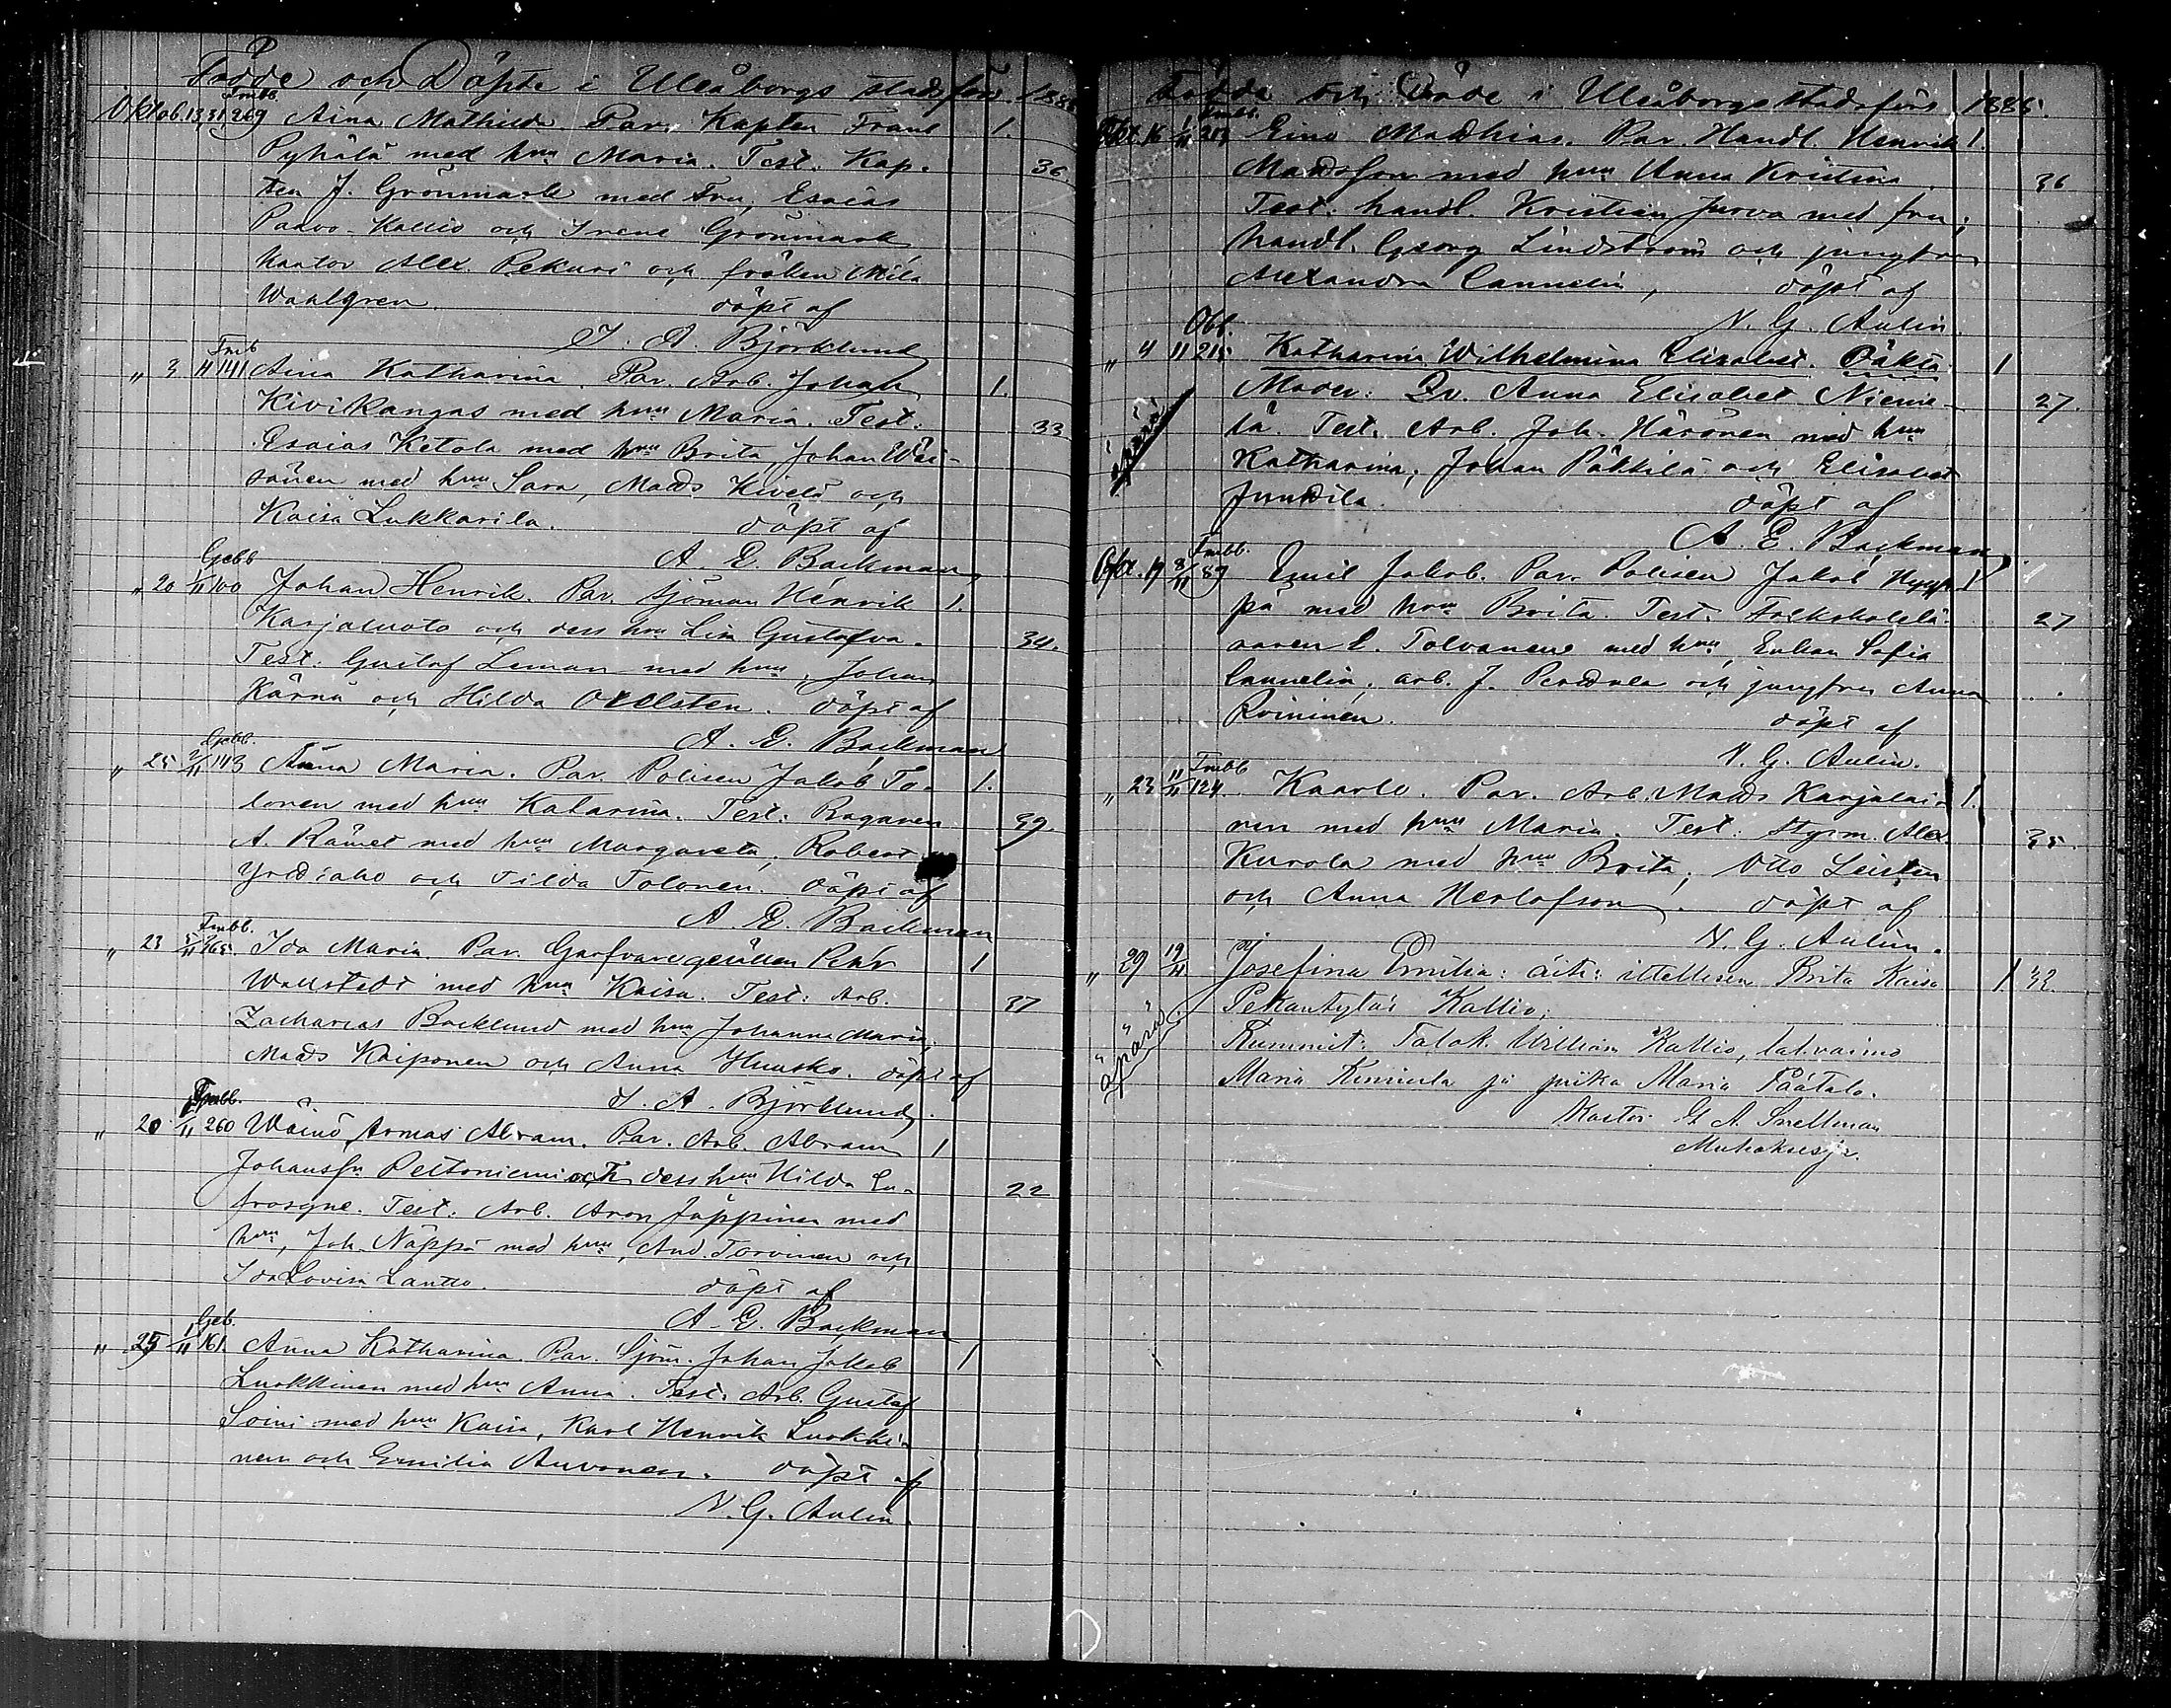 Födde och Döpte i Uleåborgs stadsförs. 1886
Oktob. 13 31 Fmbb. 269 Aina Mathilda Par. Kapten Frans 1.
Pyhälä med hu Maria. Test. Kap- 36
ten J. Grönmark med Fru, Esaias
Paavo-Kallio och Irene Grönmark
Kantor Alex. Pekuri och fröken Mila
Waalgren. döpt af
J. A. Björklund
" 3 11 Fmb 141 Aina Katharina. Par. Arb. Johan 1.
Kivikangas med hu Maria. Test. 33
Esaias Ketola med hu Brita, Johan Väi-
sänen med hu Sara, Mads Kivelä och
Kaisa Lukkarila. döpt af
A. E. Backman
" 20 11 Gebb 100 Johan Henrik. Par. sjöman Henrik 1.
Karjaluoto och dess hu Lisa Gustafva. 34.
Test. Gustaf Leman med hu, Johan
Kärnä och Hilda Ocksten. döpt af
A. E. Backman
" 25 2/11 Gebb. 143 Anna Maria. Par. Polisen Jakob To- 1.
lonen med hu Katarina. Test: Bagaren 39.
A. Rämet med hu Margareta, Robert
Yrdiaho och Tilda Tolonen. döpt af
A. E. Backman
" 23 5/11 Fmbb. 165. Ida Maria. Par. Garfvaregesällen Pehr 1
Wallstedt med hu Kaisa. Test: Arb. 37
Zacharias Backlund med hu Johanna Maria,
Mads Kaiponen och Anna Huusko. döpt af
J. A. Björklund.
" 20 11 260 Wäinö Armas Abram. Par. Arb. Abram 1
Johansfn Peltoniemi och dess hu Hilda Eu- 22
frosyne. Test: Arb. Aron Jäppinen med
hu, Joh. Näppä med hu, And. Torvinen och
Ida Lovisa Lantto. döpt af
A. E. Backman
" 25 1/11 Geb. 161. Anna Katharina. Par. Sjöm. Johan Jakob 1
Luokkinen med hu Anna. Test. Arb. Gustaf
Soini med hu Kaisa, Karl Henrik Luokki-
nen och Emilia Auvonen. döpt af
N. G. Aulin.
Födda och Döde i Uleåborgs stadsförs 1886.
Okt. 16 1/11 Fmbb. 213 Eino Mathias. Par. Handl. Henrik 1.
Madsson med hu Anna Kristina 36
Test: handl. Kristian Jurva med fru,
handl. Georg Lindström och jungfru
Alexandra Cannelin, döpt af
N. G. Aulin
" 4 11 Obb. 215. Katharina Wilhelmina Elisabet. Oäkta 1
äpärä Moder: Qv. Anna Elisabet Nieme- 27.
lä. Test. Arb. Joh. Härönen med hu
Katharina, Johan Päkkilä och Elisabet
Juntila. döpt af
A. E. Backman.
Okt. 19 8/11 Fmbb. 89 Emil Jakob. Par. Polisen Jakob Nyyp- 1
pä med hu Brita. Test. Folkskolelä- 27
raren E. Tolvanen med hu, Enkan Sofia
Cannelin, arb. J. Perdula och jungfru Anna
Roininen. döpt af
N. G. Aulin.
" 23 11/11 Fmbb 124. Kaarlo. Par. Arb. Mads Karjalai- 1.
nen med hu Maria. Test: Styrm. Alex. 35.
Kurola med hu Brita, Otto Leisten
och Anna Herlofson. döpt af
N. G. Aulin.
" 29 19/11 Josefina Emilia: äiti: itsellisen Brita Kaisa 1. 32.
äpärä Pekantytär Kallio.
Kummit: Talok. William Kallio, tal.vaimo
Maria Kiminla ja piika Maria Päätalo.
Kastoi G A Snellman
Muhoksesja.